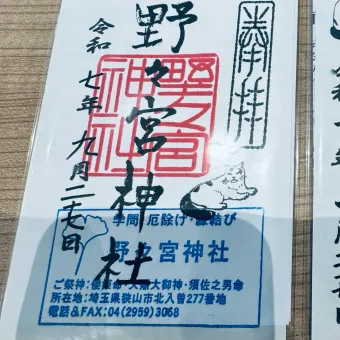 奉拝
野々宮神社
野々宮神社
令和七年九月二七日
学問・厄除け・縁結び
野々宮神社
ご祭神:倭姫命・天照大御神・須佐之男命
所在地:埼玉県狭山市北入曽277番地
電話&FAX:04(2959)3068